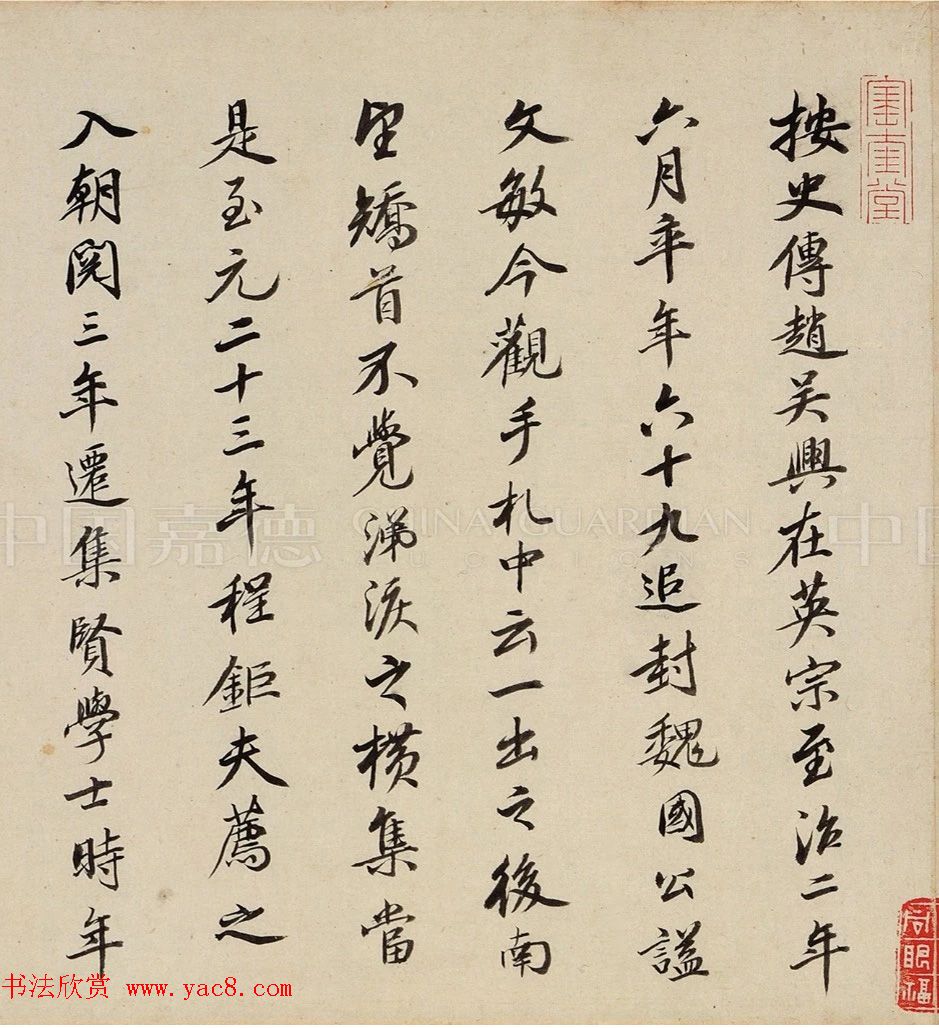 按史傳趙吴興在英宗至治二年
六月卒年六十九追封魏國公謚
文敏今觀手札中云一出之後南
望矯首不覺涕淚之横集當
是至元二十三年程鉅夫薦之
入朝閱三年遷集賢學士時年
寶奎堂
有眼福
中国嘉德 CHINA GUARDIAN AUCTIONS 中国
书法欣赏 www.yac8.com